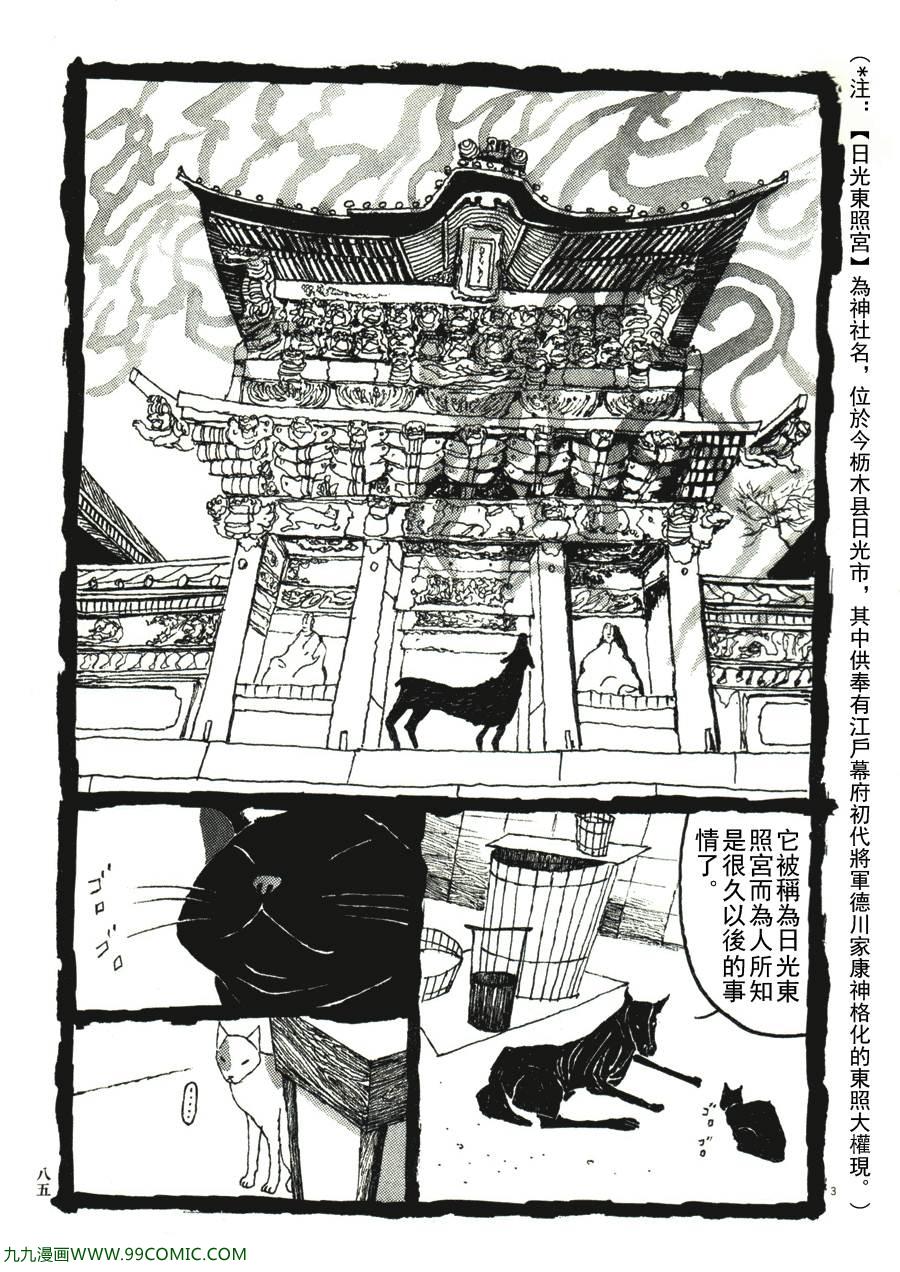 (*注：【日光東照宮】為神社名，位於今栃木县日光市，其中供奉有江戶幕府初代將軍德川家康神格化的東照大權現。)
它被稱為日光東
照宮而為人所知
是很久以後的事
情了。
ゴロ
ゴロ
ゴロ
ゴロ
……
3
八五
九九漫画WWW.99COMIC.COM